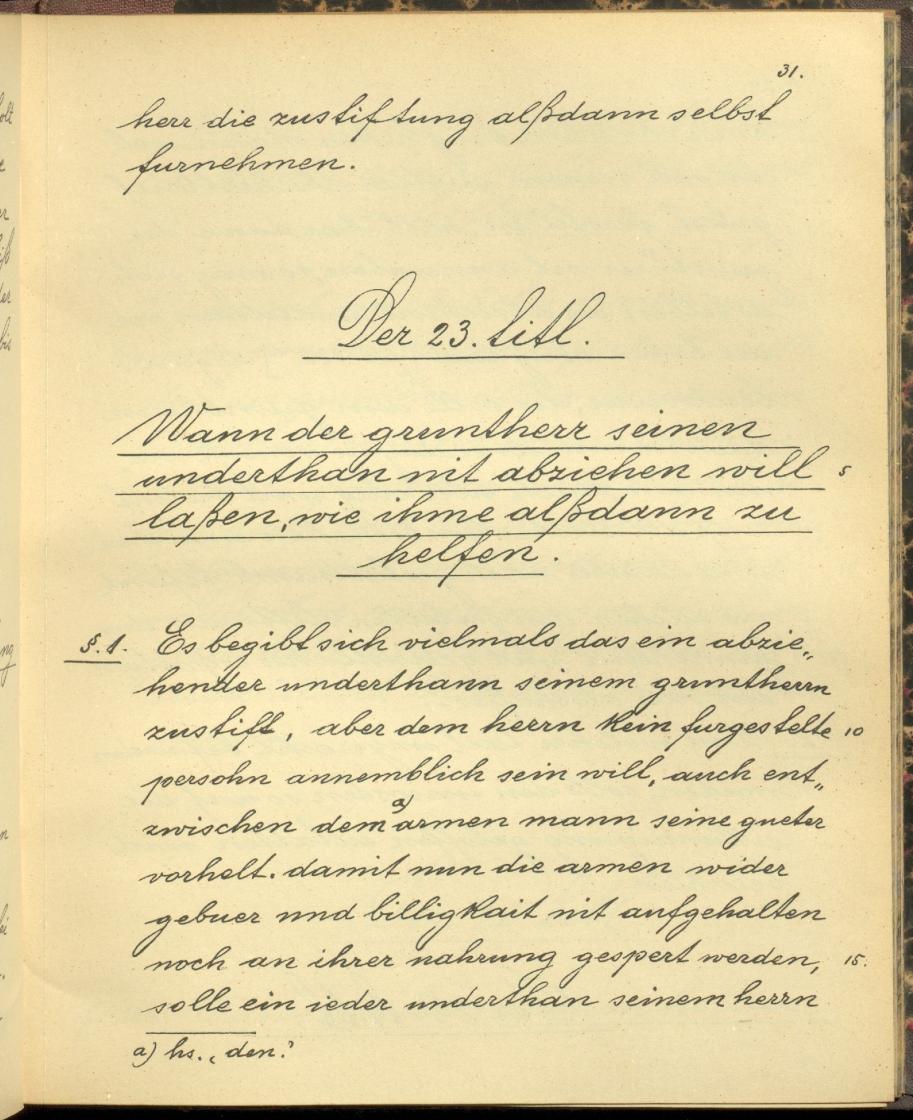 31.
herr die zustiftung alßdann selbst
furnehmen.
Der 23. titl.
Wann der gruntherr seinen
underthan nit abziehen will 5
laßen, wie ihme alßdann zu
helfen.
§. 1. Es begibt sich vielmals das ein abzie„
hender underthann seinem gruntherrn
zustift, aber dem herrn kein furgestelte 10
persohn annemblich sein will, auch ent„
zwischen dem a) armen mann seine gueter
vorhelt. damit nun die armen wider
gebuer und billigkait nit aufgehalten
noch an ihrer nahrung gespert werden, 15.
solle ein ieder underthan seinem herrn
a) hs. „den.“